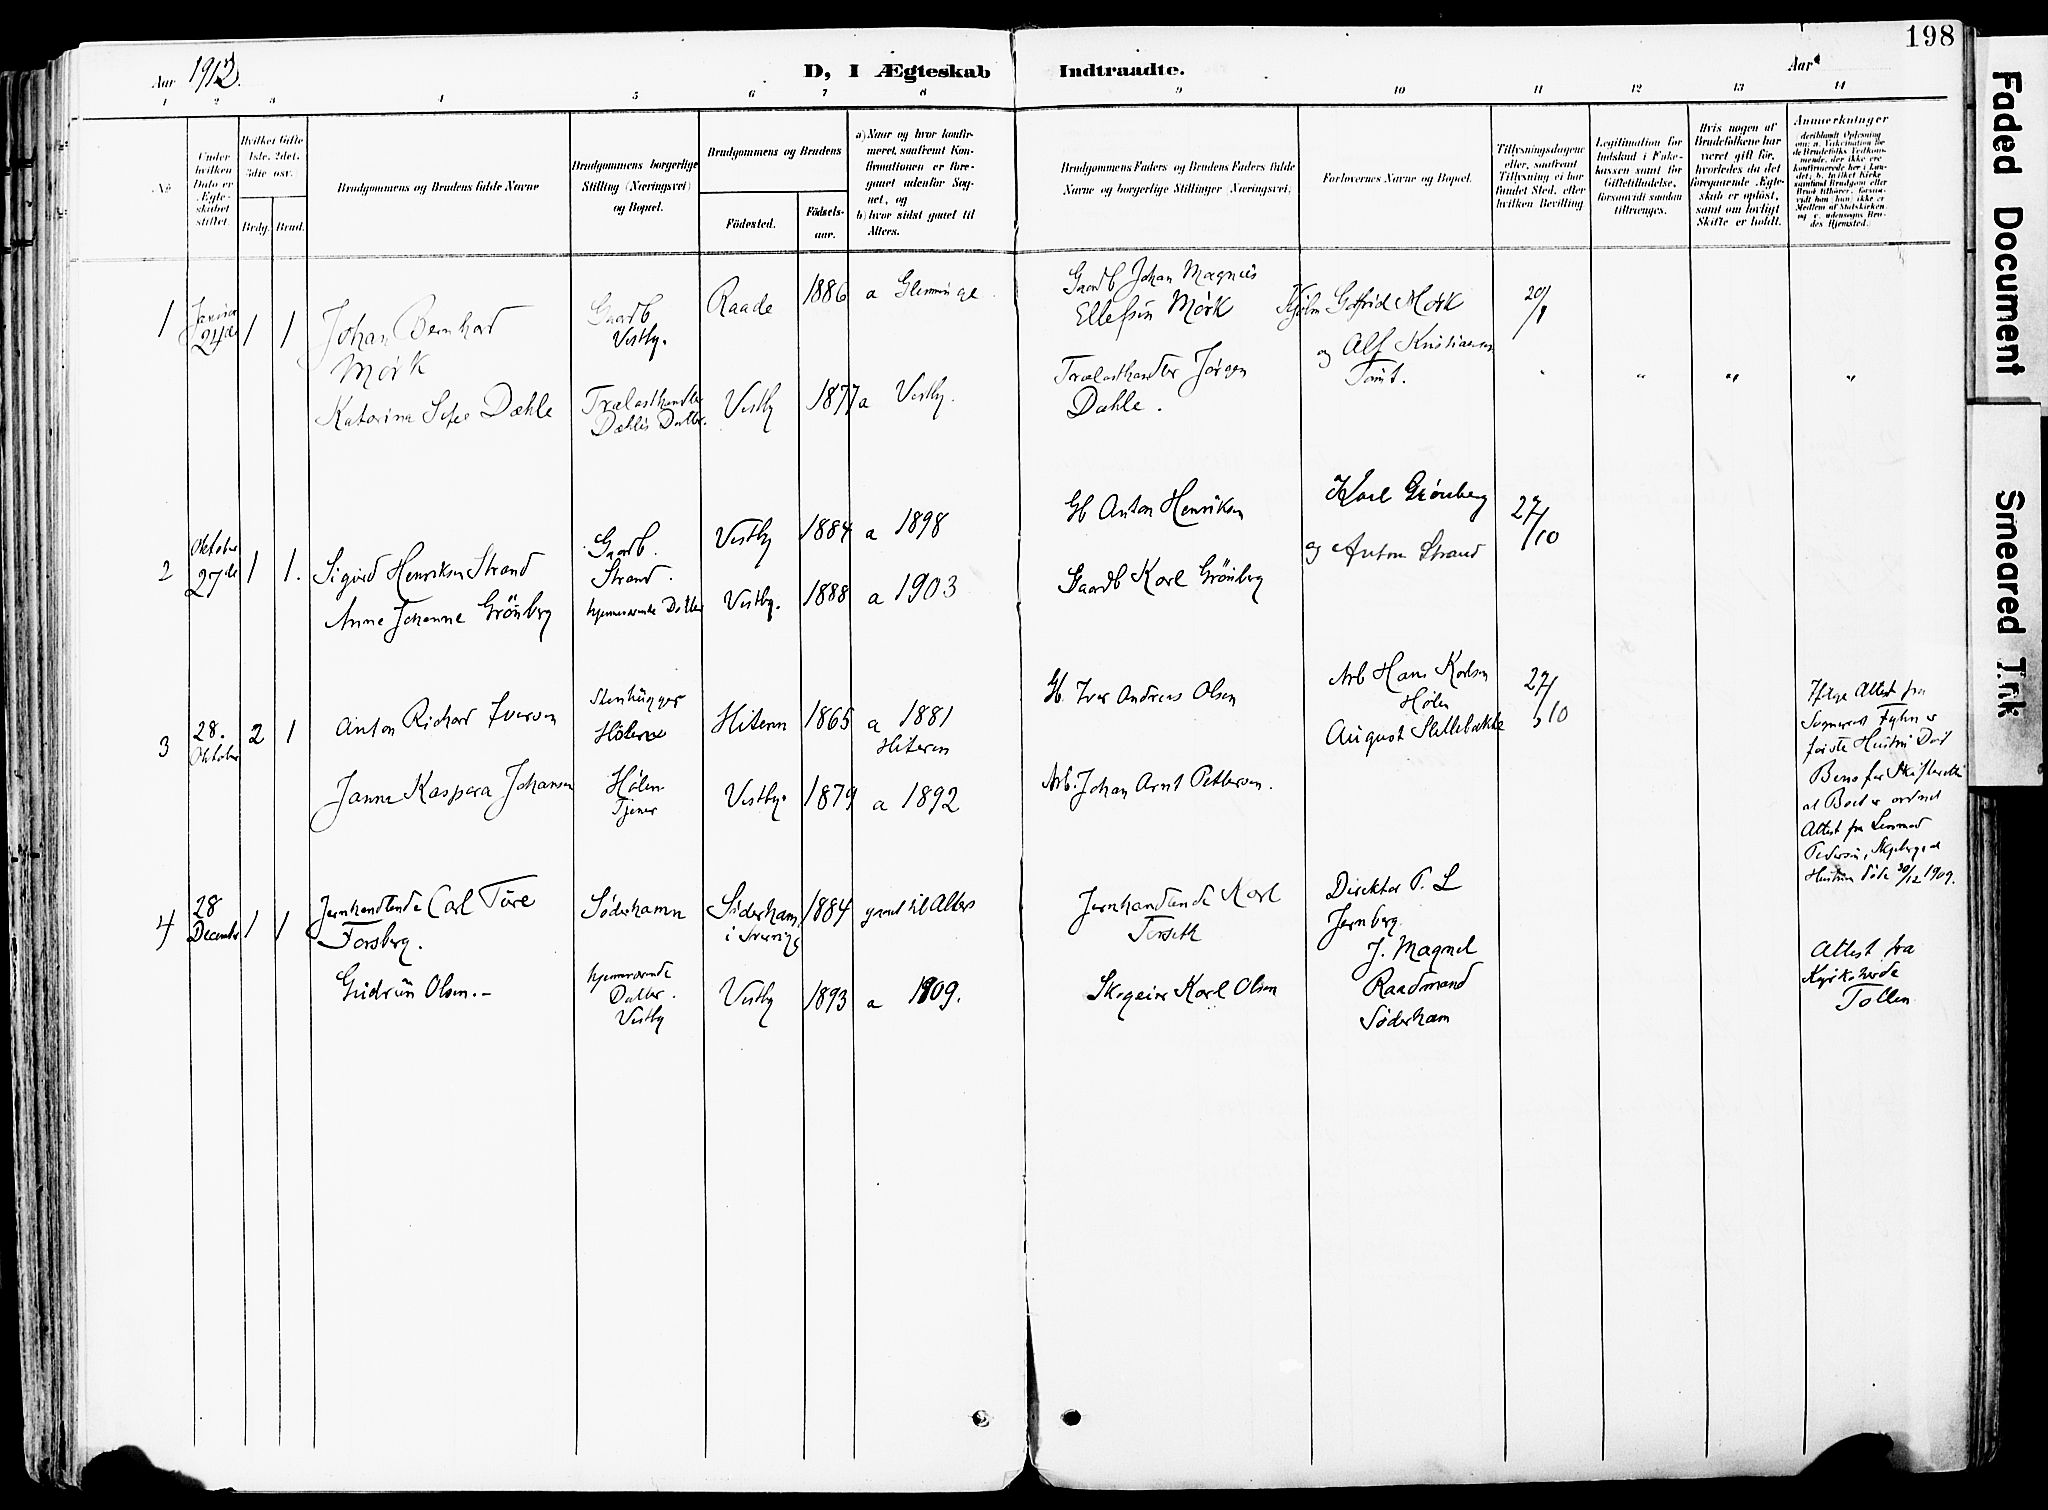 198
Aar 1912.
D, I Ægteskab Indtraadte.
Aar
1 2 3 4 5 6 7 8 9 10 11 12 13 14
No
Under hvilken Dato er Ægteskabet stiftet.
Hvilket Gifte 1ste, 2det, 3die osv.
Brdg. Brud.
Brudgommens og Brudens fulde Navne
Brudgommens borgerlige Stilling (Næringsvei) og Bopæl.
Brudgommens og Brudens
Födested.
Födselsaar.
a) Naar og hvor konfirmeret, saafremt Konfirmationen er foregaaet udenfor Sognet, og
b) hvor sidst gaaet til Alters.
Brudgommens Faders og Brudens Faders fulde Navne og borgerlige Stillinger (Næringsvei).
Forlovernes Navne og Bopæl.
Tillysningsdagene eller, saafremt Tillysning ei har fundet Sted, efter hvilken Bevilling
Legitimation for Indskud i Enkekassen samt for Giftetilladelse, forsaavidt saadan tiltrænges.
Hvis nogen af Brudefolkene har været gift før, hvorledes da det foregaaende Ægteskab er opløst, samt om lovligt Skifte er holdt.
Anmerkninger
1 Januar 24de 1 1 Johan Bernhard Mørk
Gaardb Vestby.
Raade 1886 a Glemminge
Gaardb Johan Magnus Ellefsen Mørk
Gotfrid Mørk
og Alf Kristiansen
20/1
Katarina Dæhle
Trælasthandler Dæhlis Datter.
Vestby 1877 a Vestby.
Trælasthandler Jørgen Dæhle.
" " " "
2 Oktober 27de 1 1. Sigurd Henriksen Strand
Gaardb. Strand.
Vestby 1884 a 1898
Gb Anton Henriksen
Karl Grönberg
27/10
Anne Johanne Grönberg
hjemmeværende Datter
Vestby. 1888 a 1903
Gaardb Karl Grönberg
og Anton Strand
3 28. Oktober 2 1 Anton Richard Iversen
Stenhugger Hölen
Hiteren 1865 a 1881 Hiteren
Gb Iver Andreas Olsen
Arb Hans Karlsen Hølen
August Slettebakke
27/10
Janna Kaspara Johansen
Hølen Tjener
Vestby. 1879 a 1892
Arb. Johan Arnt Pettersen.
Ifølge Attest fra
Fyhn er
første Hustru Død
Bevis fra Skifteretten
at Boet er ordnet
Attest fra Lensmand
Pedersen, Skjeberg at
Hustru døde 30/12 1909.
4 28 December 1 1 Jernhandlende Carl Ture Forsberg.
Söderhamn
Söderhamn i Sverrige 1884 gaaet til Alters
Jernhandlende Karl
Direktør P. L
Jernberg.
Gudrun Olsen.-
hjemmeværende Datter. Vestby
Vestby 1893 a 1909.
Skogeier Karl Olsen
J. Magnel
Raadmand
Söderham
Attest fra
Kyrkoherde
Tollen
Faded Document
Smeared Trk